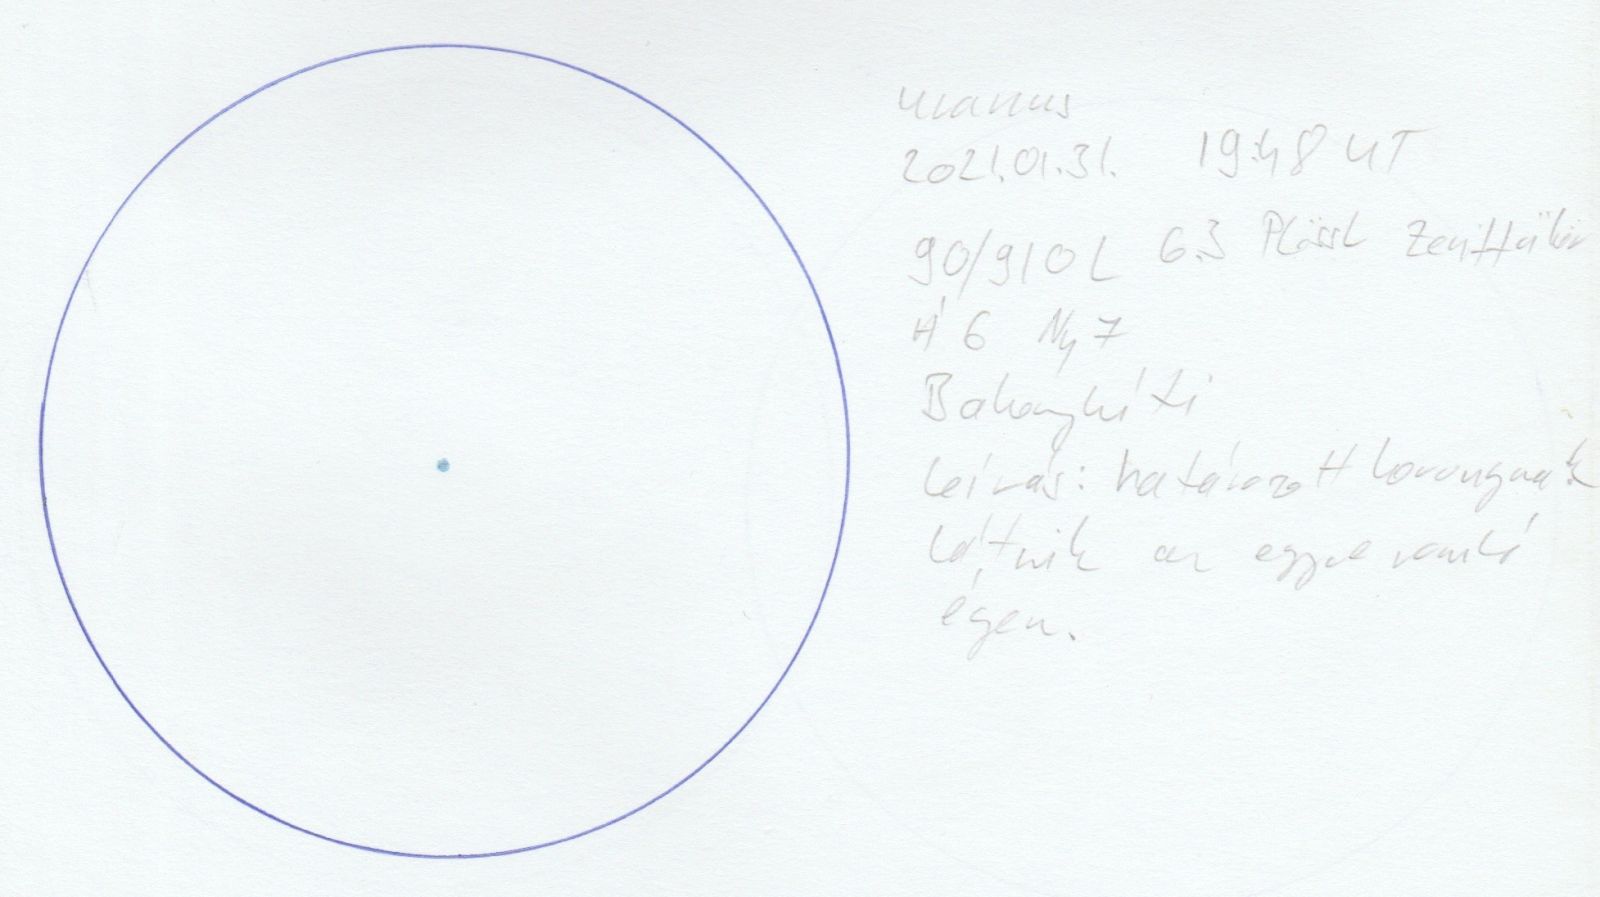 Uranus
2021.01.31. 19:48 UT
90/910 L 6.3 Plössl Zenittükör
Á 6 Ny 7
Bakonykúti
Leírás: határozott korongnak
látszik az egyre romló
égen.